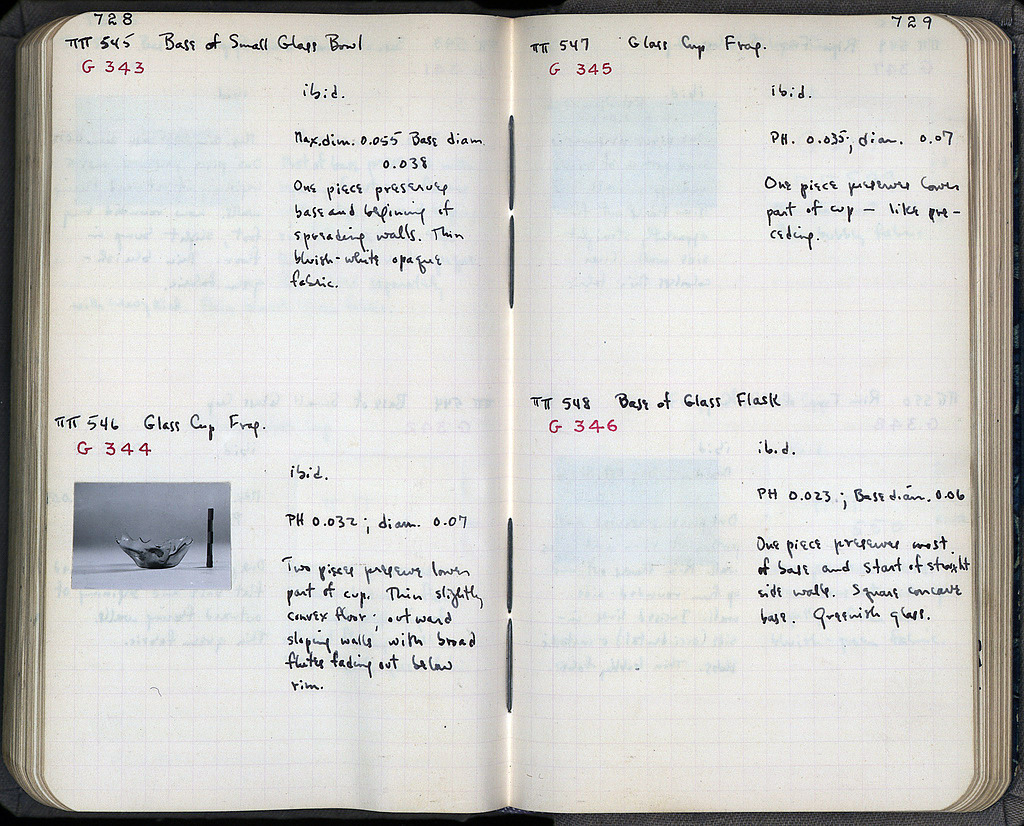 728
ΠΠ 545 Base of Small Glass Bowl
G 343
ibid.
Max.dim. 0.055 Base diam.
0.038
One piece preserves
base and begining of
spreading walls. Thin
bluish-white opaque
fabric.
ΠΠ 546 Glass Cup Frag.
G 344
ibid.
PH 0.032; diam. 0.07
Two pieces preserve lower
part of cup. Thin slightly
convex floor; outward
sloping walls with broad
flutes fading out below
rim.
729
ΠΠ 547 Glass Cup Frag.
G 345
ibid.
PH. 0.035; diam. 0.07
One piece preserves lower
part of cup – like pre-
ceding.
ΠΠ 548 Base of Glass Flask
G 346
ibid.
PH 0.023; Base diam. 0.06
One piece preserves most
of base and start of straight
side walls. Square concave
base. Greenish glass.